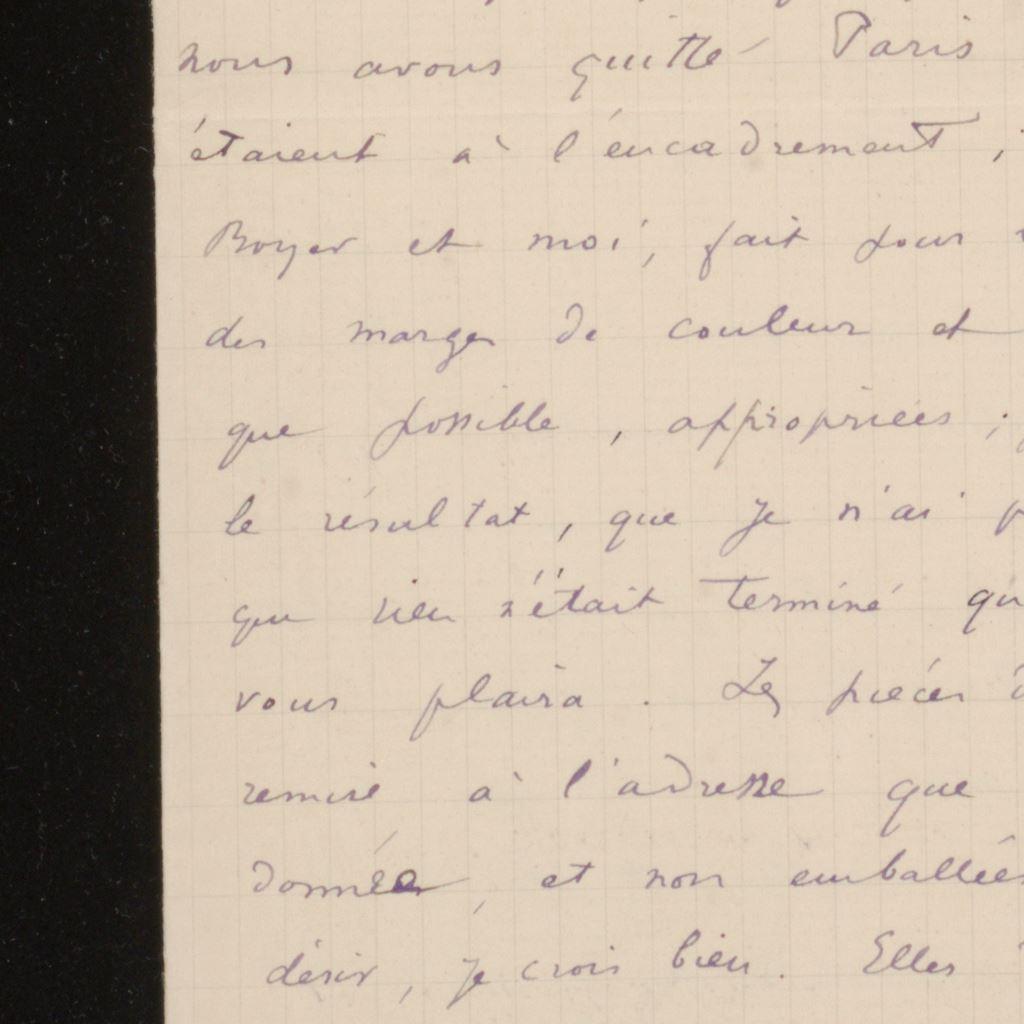 nous avons quitté Paris
étaient à l'encadrement,
Boyer et moi, fait pour
des marges de couleur et
que possible, appropriées ;
le résultat, que je n'ai
que rien n'était terminé qu
vous plaira. Les pièces
remise à l'adresse que
données, et non emballées
désir, je crois bien. Elles